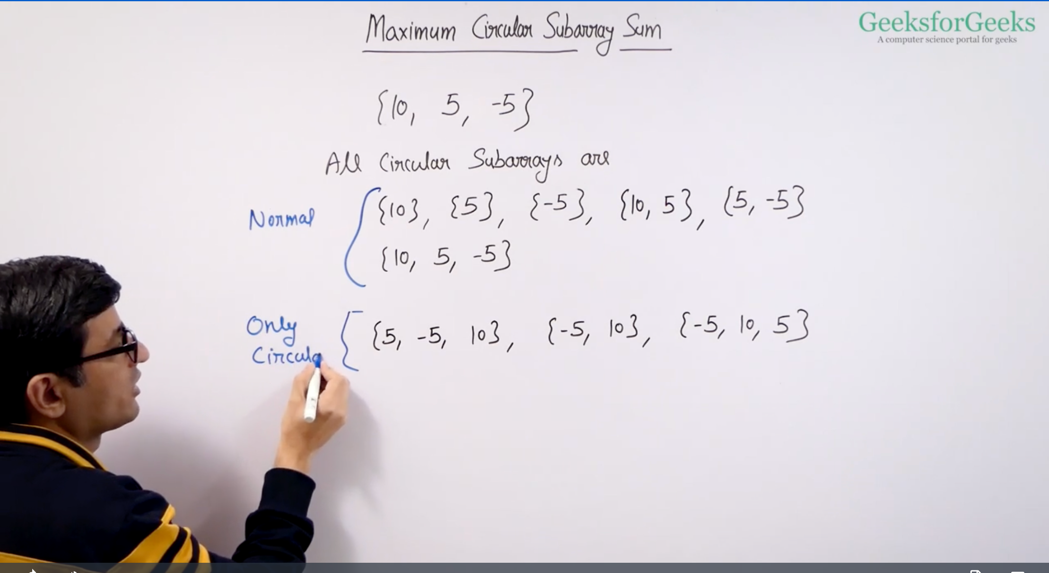 Maximum Circular Subarray Sum
GeeksforGeeks
A computer science portal for geeks
{10, 5, -5}
All Circular Subarrays are
Normal {10}, {5}, {-5}, {10, 5}, {5, -5}
{10, 5, -5}
Only {5, -5, 10}, {-5, 10}, {-5, 10, 5}
Circula